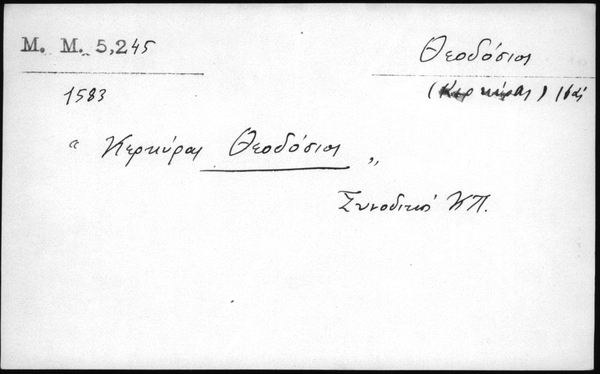 M. M. 5,245
Θεοδόσιος
(Κερκύρας)
1583
“ Κερκύρας Θεοδόσιος „
Συνοδικοί ΚΠ.